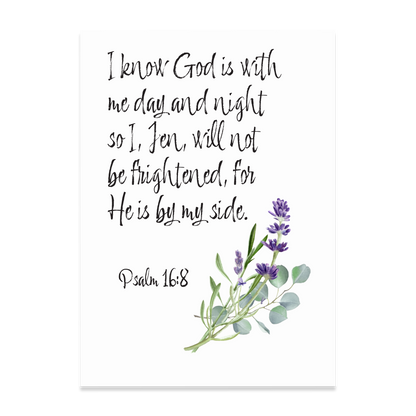 I know God is with
me day and night
so I, Jen, will not
be frightened, for
He is by my side.
Psalm 16:8